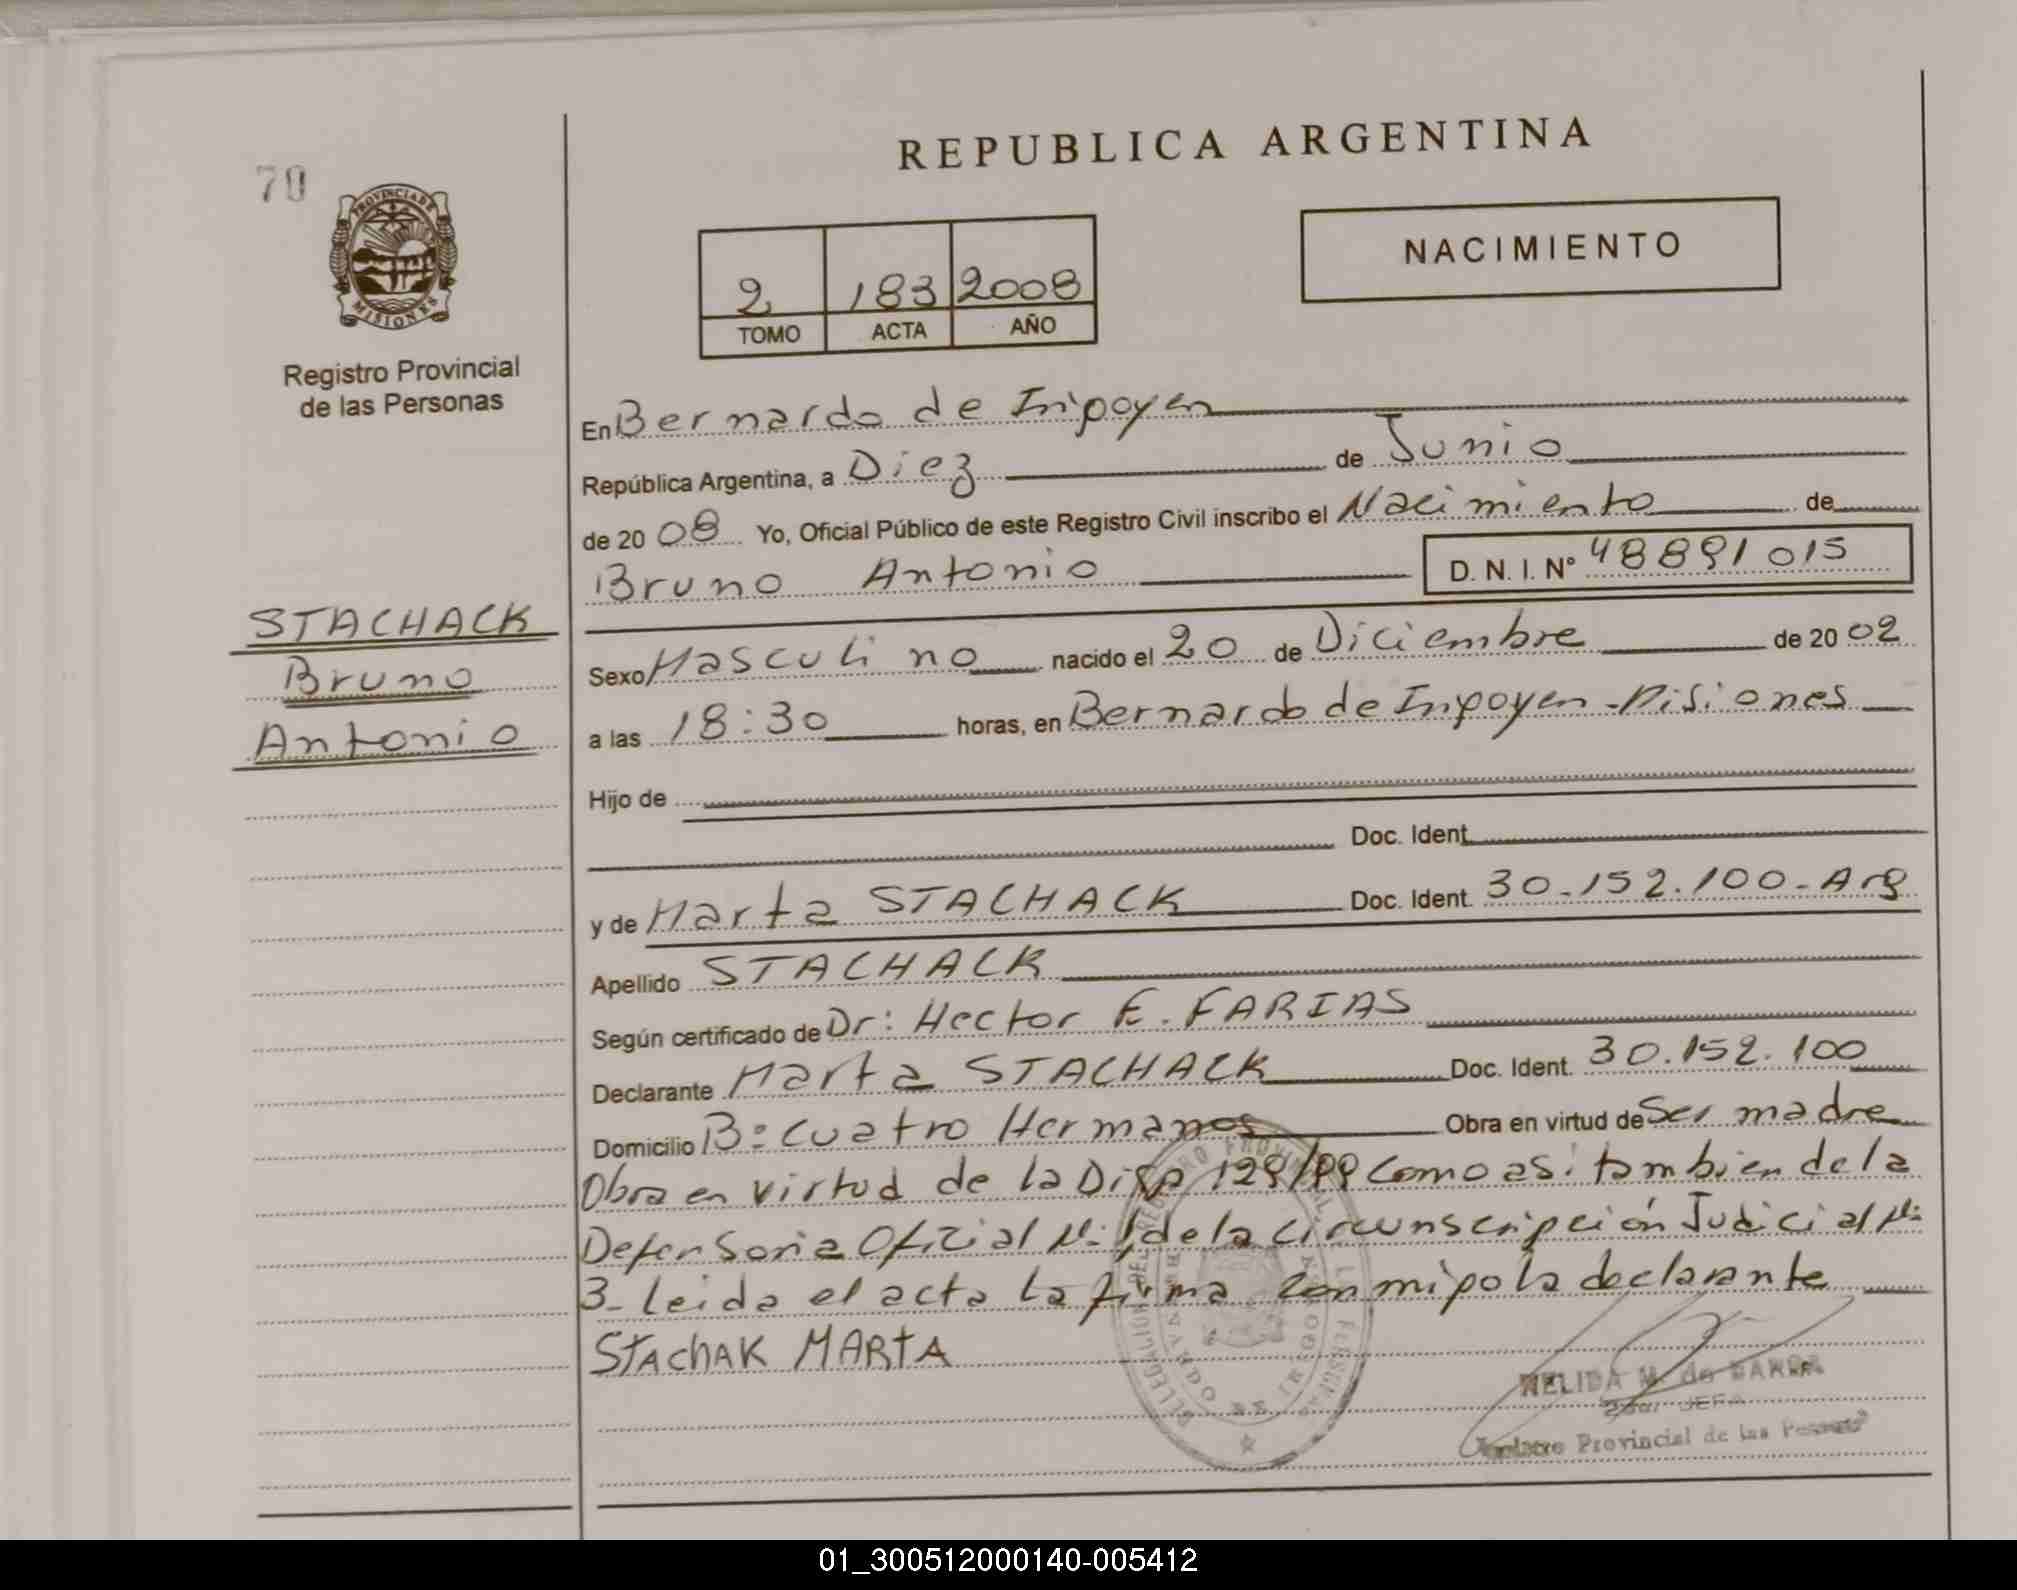 REPUBLICA ARGENTINA
70
PROVINCIA DE
MISIONES
Registro Provincial
de las Personas
NACIMIENTO
2 183 2008
TOMO ACTA AÑO
En Bernardo de Iripoyen
República Argentina, a Diez de Junio
de 20 08 Yo, Oficial Público de este Registro Civil inscribo el Nacimiento de
Bruno Antonio D. N. I. Nº 48891015
STACHACK
Bruno
Antonio
Sexo Masculino nacido el 20 de Diciembre de 20 02
a las 18:30 horas, en Bernardo de Iripoyen - Misiones
Hijo de
Doc. Ident.
y de Marta STACHACK Doc. Ident. 30.152.100 - Arg
Apellido STACHACK
Según certificado de Dr: Hector E. FARIAS
Declarante Marta STACHACK Doc. Ident. 30.152.100
Domicilio B: Cuatro Hermanos Obra en virtud de Ser madre
Obra en virtud de la Disp 129/99 Como asi tambien de la
Defensoria Oficial Nº 1 de la circunscripción Judicial Nº
3- leida el acta la firma con mipo la declarante
STAChAK MARTA
NELIDA M. de
JEFA
Provincial de las
01_300512000140-005412